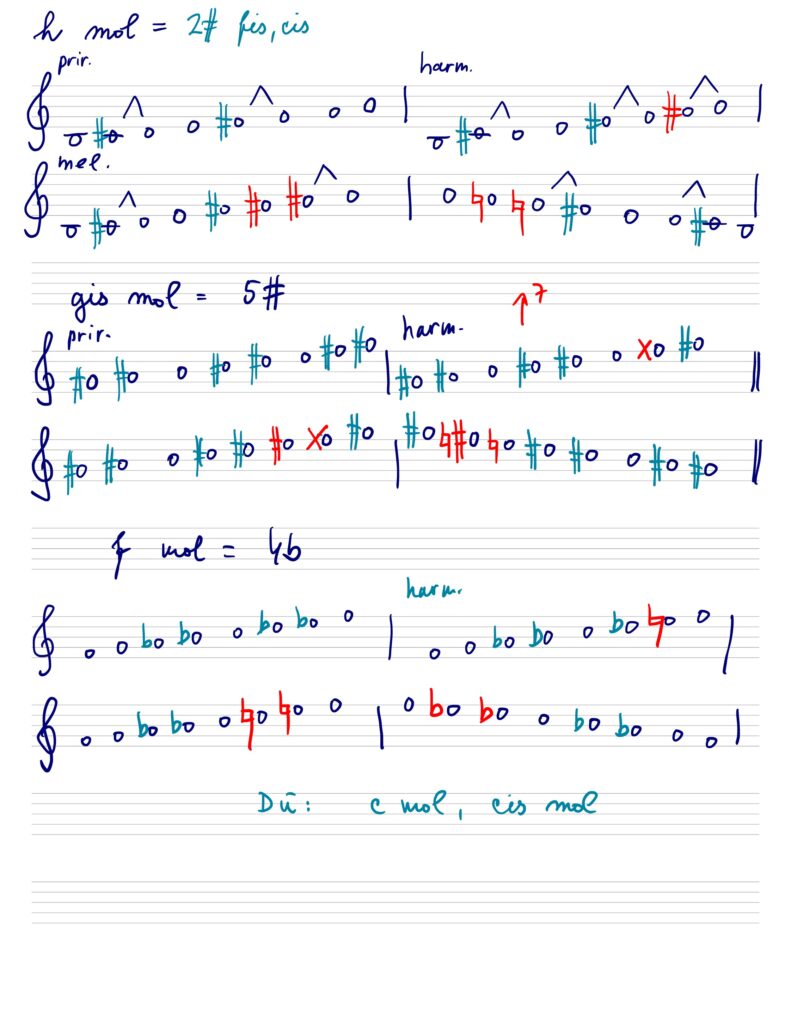 h mol = 2# fis, cis
prir. harm.
mel.
gis mol = 5#
↑7
prir. harm.
f mol = 4b
harm.
Dú: c mol, cis mol